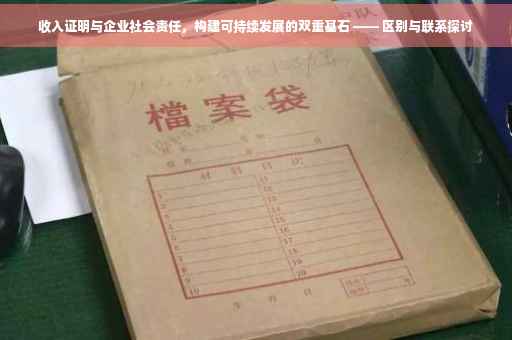 收入证明与企业社会责任，构建可持续发展的双重基石 —— 区别与联系探讨
檔案袋
材料目次
1 11
2 12
3 13
4 14
5 15
6 16
7 17
8 18
9 19
10 20
年 月 日